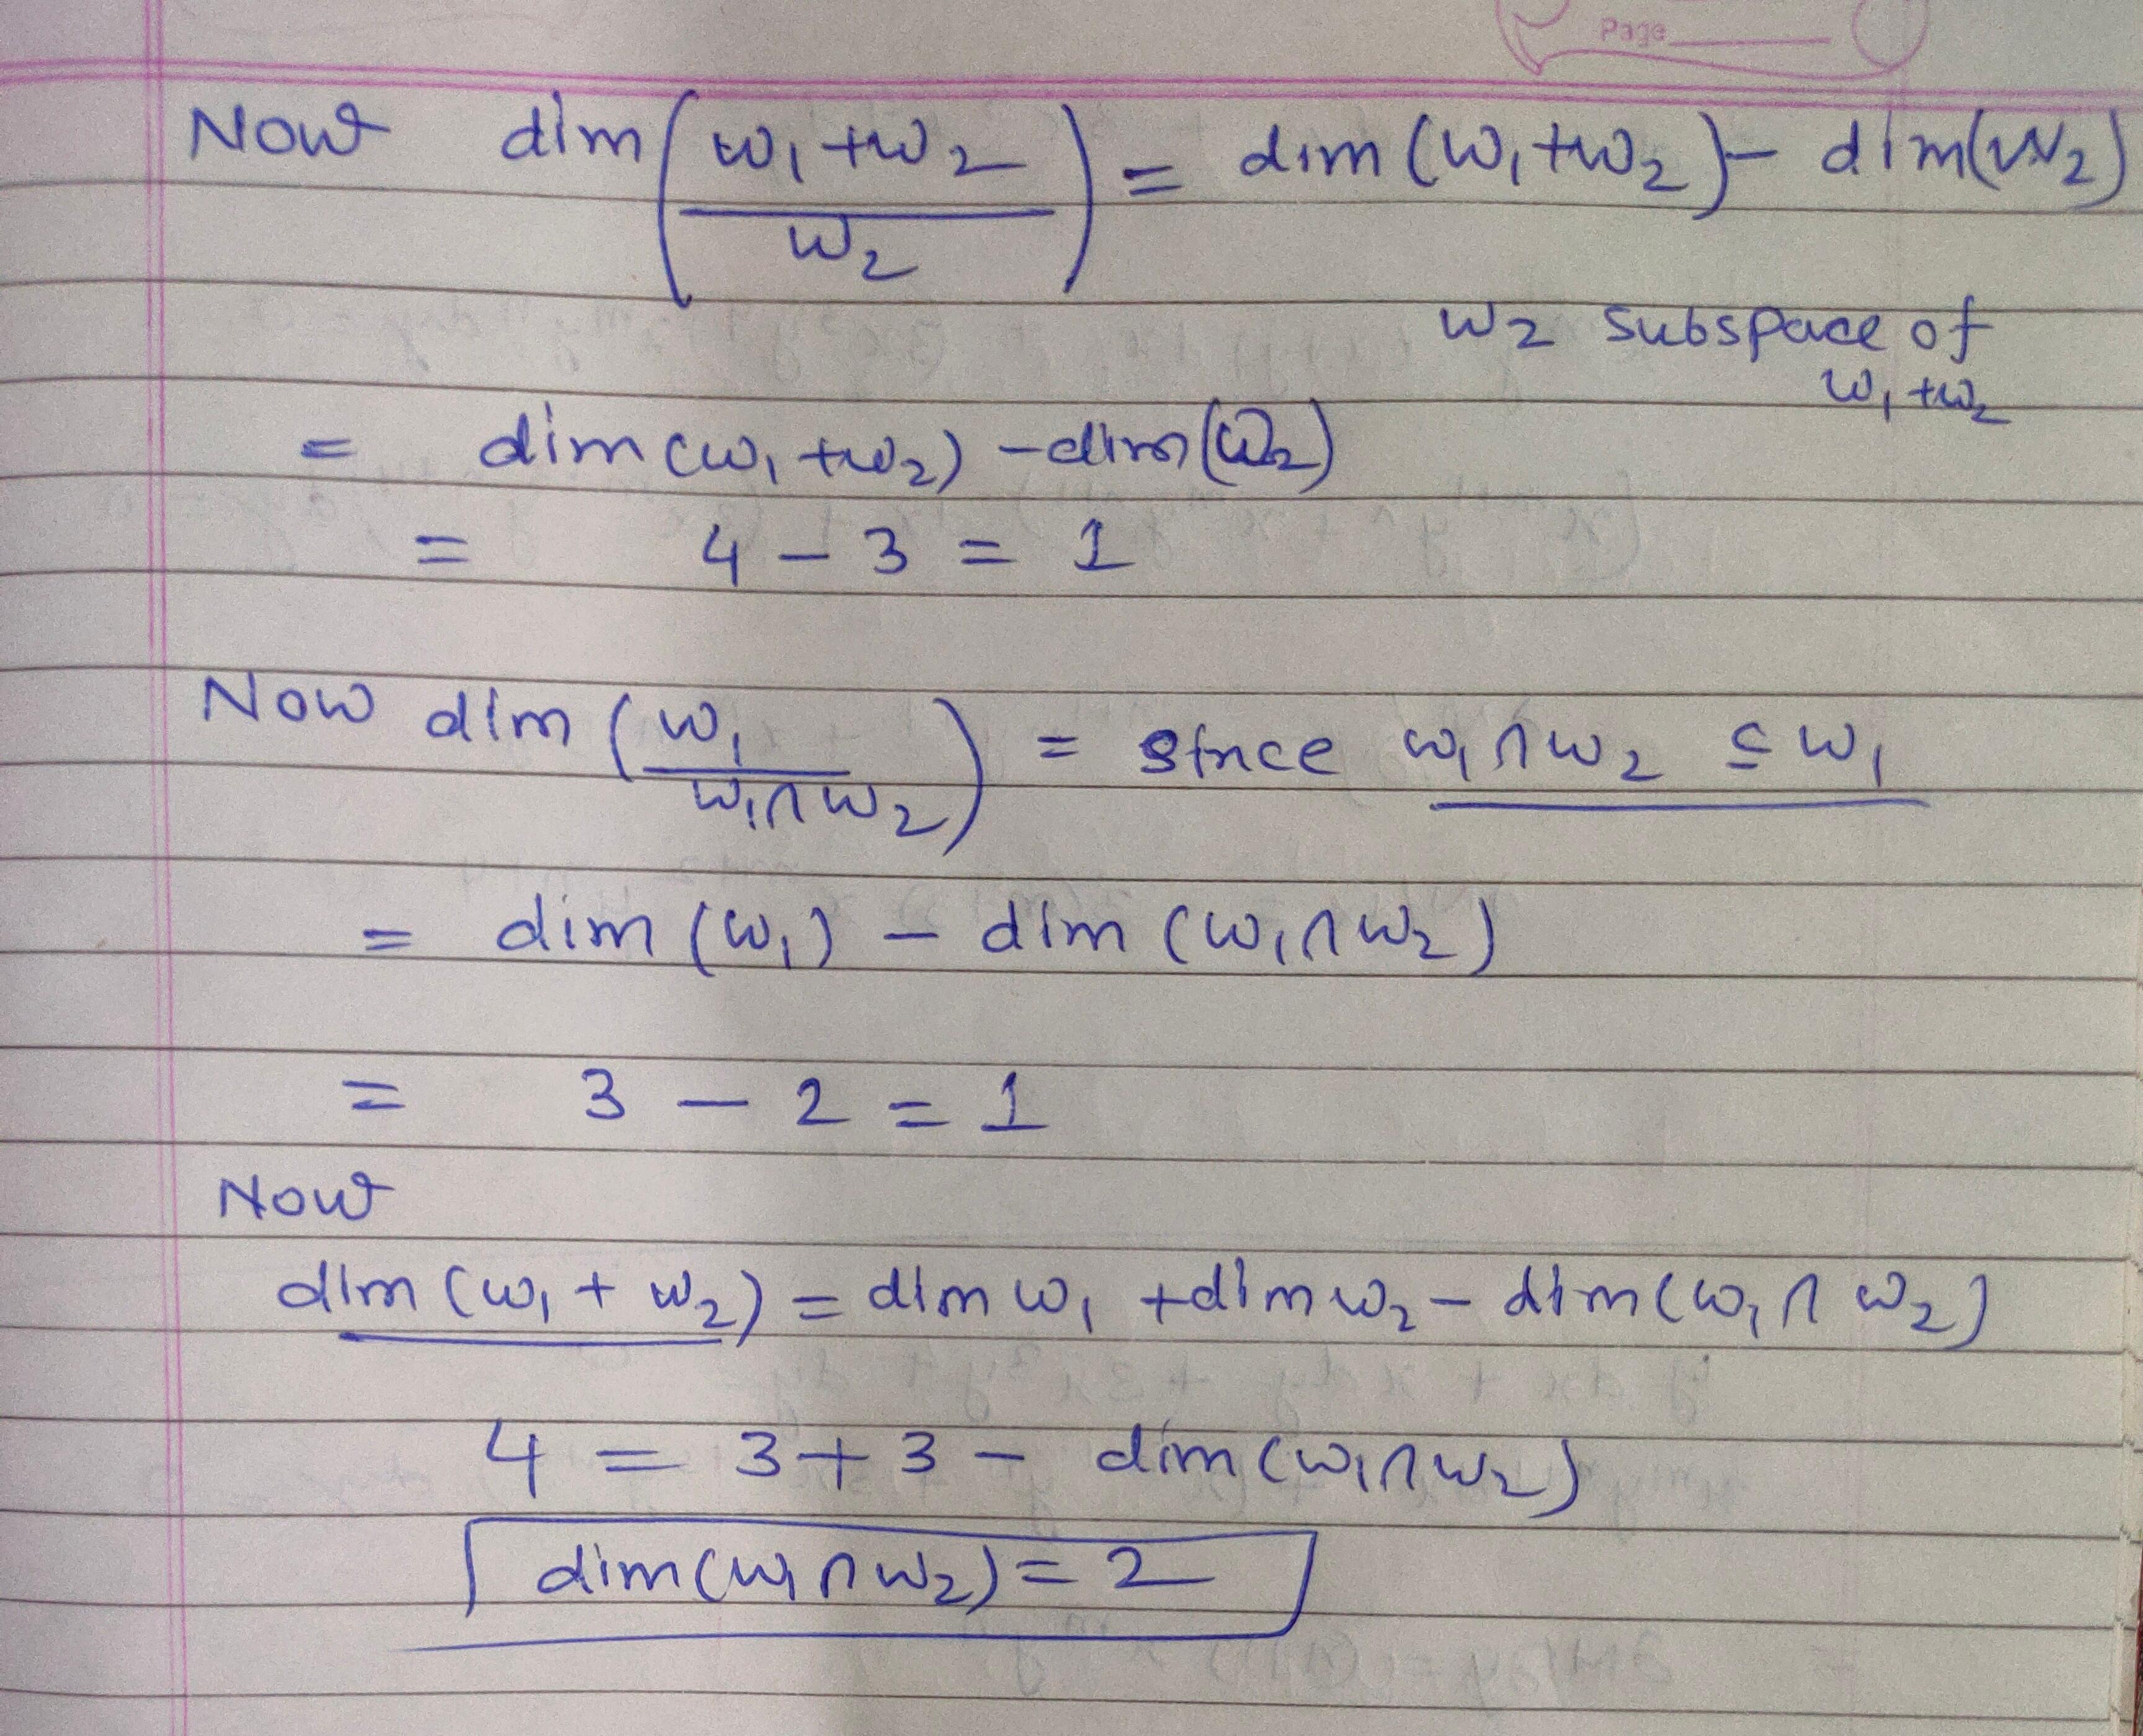 Page
Now dim((w₁+w₂)/w₂) = dim(w₁+w₂) - dim(w₂)
w₂ subspace of
w₁+w₂
= dim(w₁+w₂) - dim(w₂)
= 4 - 3 = 1
Now dim(w₁/(w₁∩w₂)) = since w₁∩w₂ ⊆ w₁
= dim(w₁) - dim(w₁∩w₂)
= 3 - 2 = 1
Now
dim(w₁+w₂) = dim w₁ + dim w₂ - dim(w₁∩w₂)
4 = 3+3 - dim(w₁∩w₂)
dim(w₁∩w₂) = 2